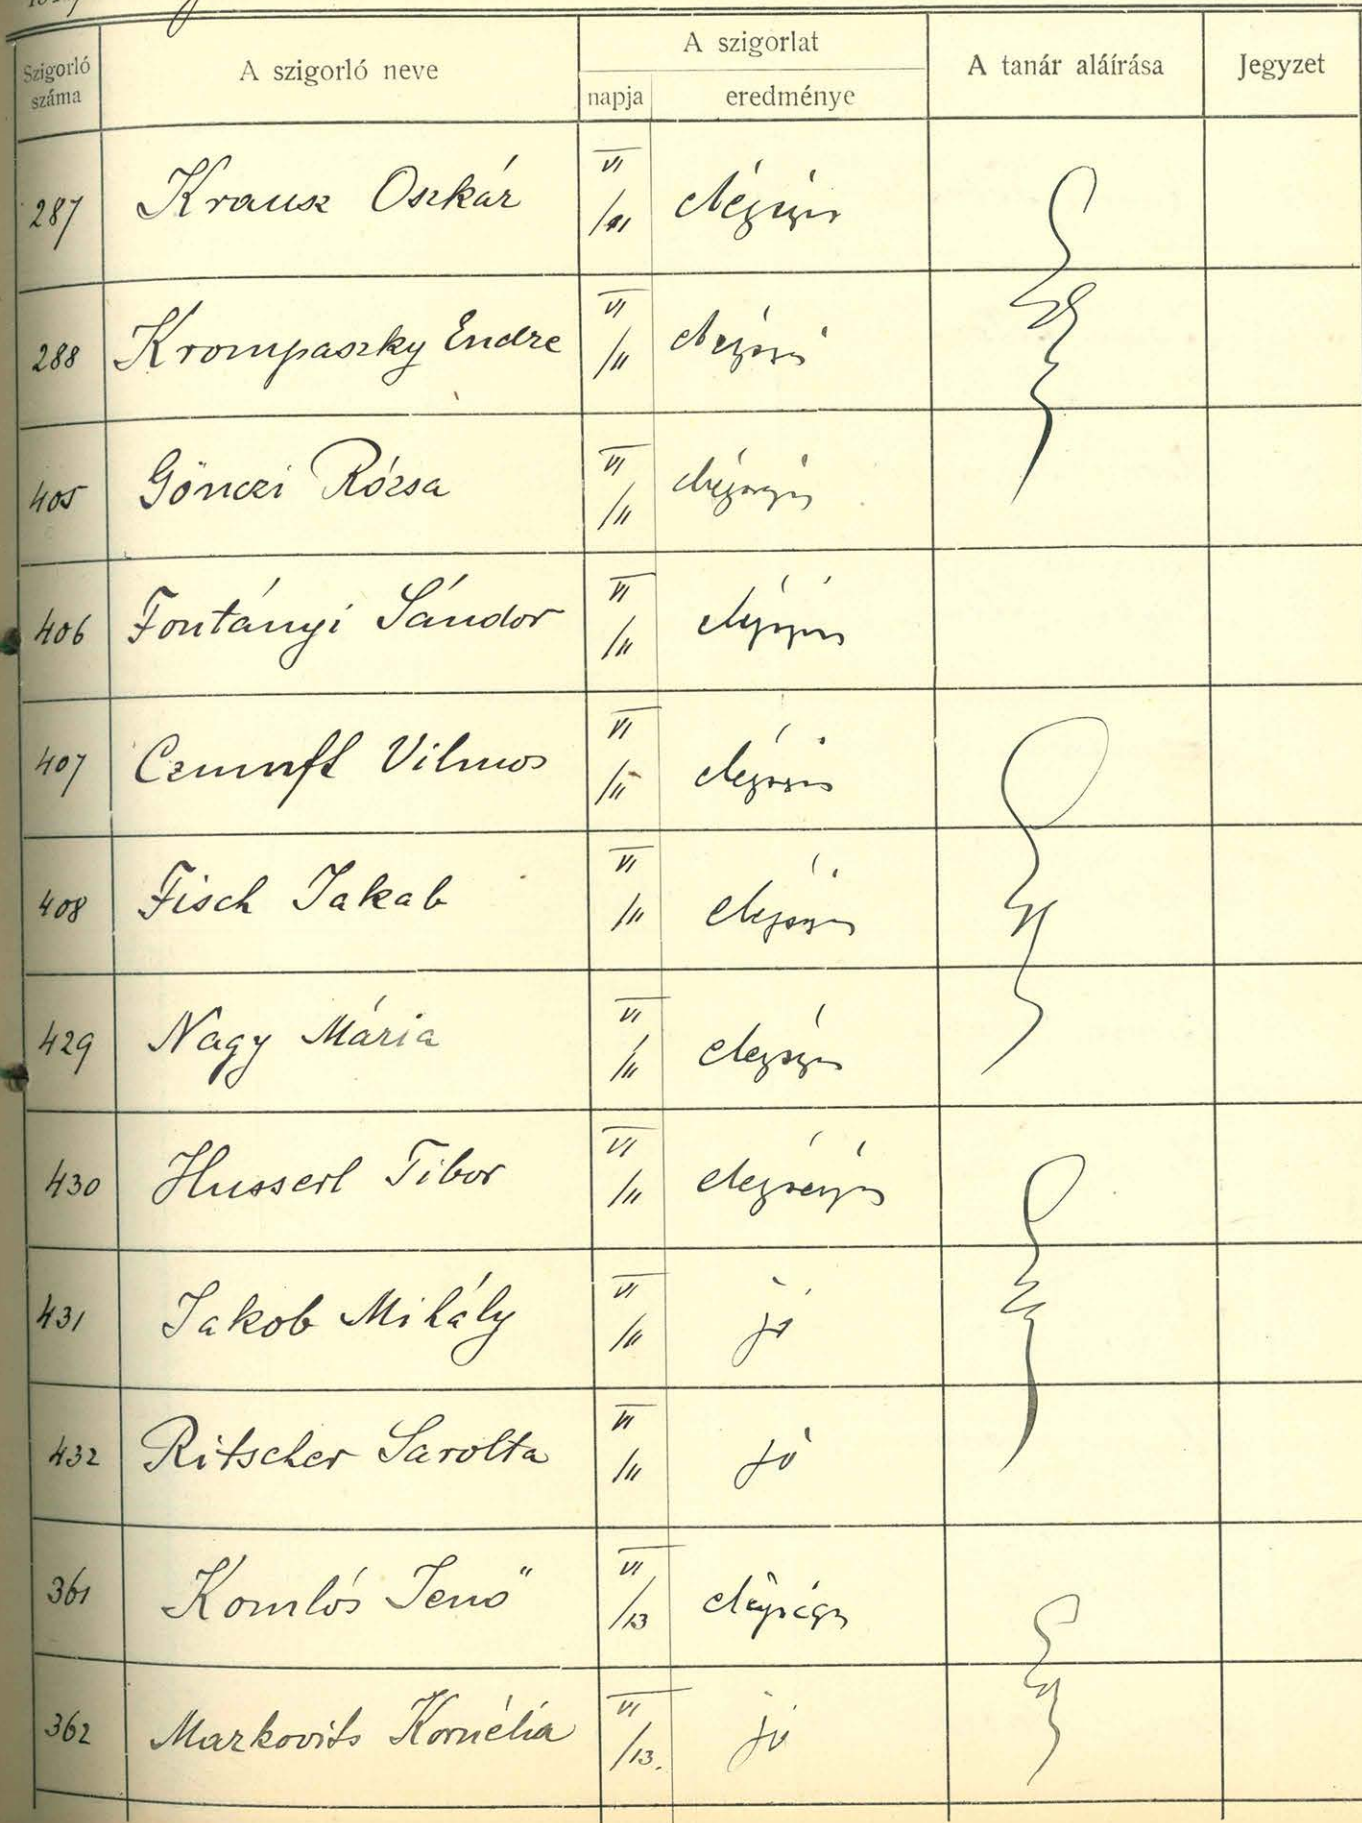 Szigorló száma A szigorló neve A szigorlat napja eredménye A tanár aláírása Jegyzet
287 Krausz Oszkár VI/11 elégséges
288 Krompaszky Endre VI/11 elégséges
405 Gönczi Rózsa VI/11 elégséges
406 Fontányi Sándor VI/11 elégséges
407 Vilmos VI/11 elégséges
408 Fisch Jakab VI/11 elégséges
429 Nagy Mária VI/11 elégséges
430 Husserl Tibor VI/11 elégséges
431 Jakob Mihály VI/11 jó
432 Ritscher Sarolta VI/11 jó
361 Komlós Jenő VI/13 elégséges
362 Markovits Kornélia VI/13. jó